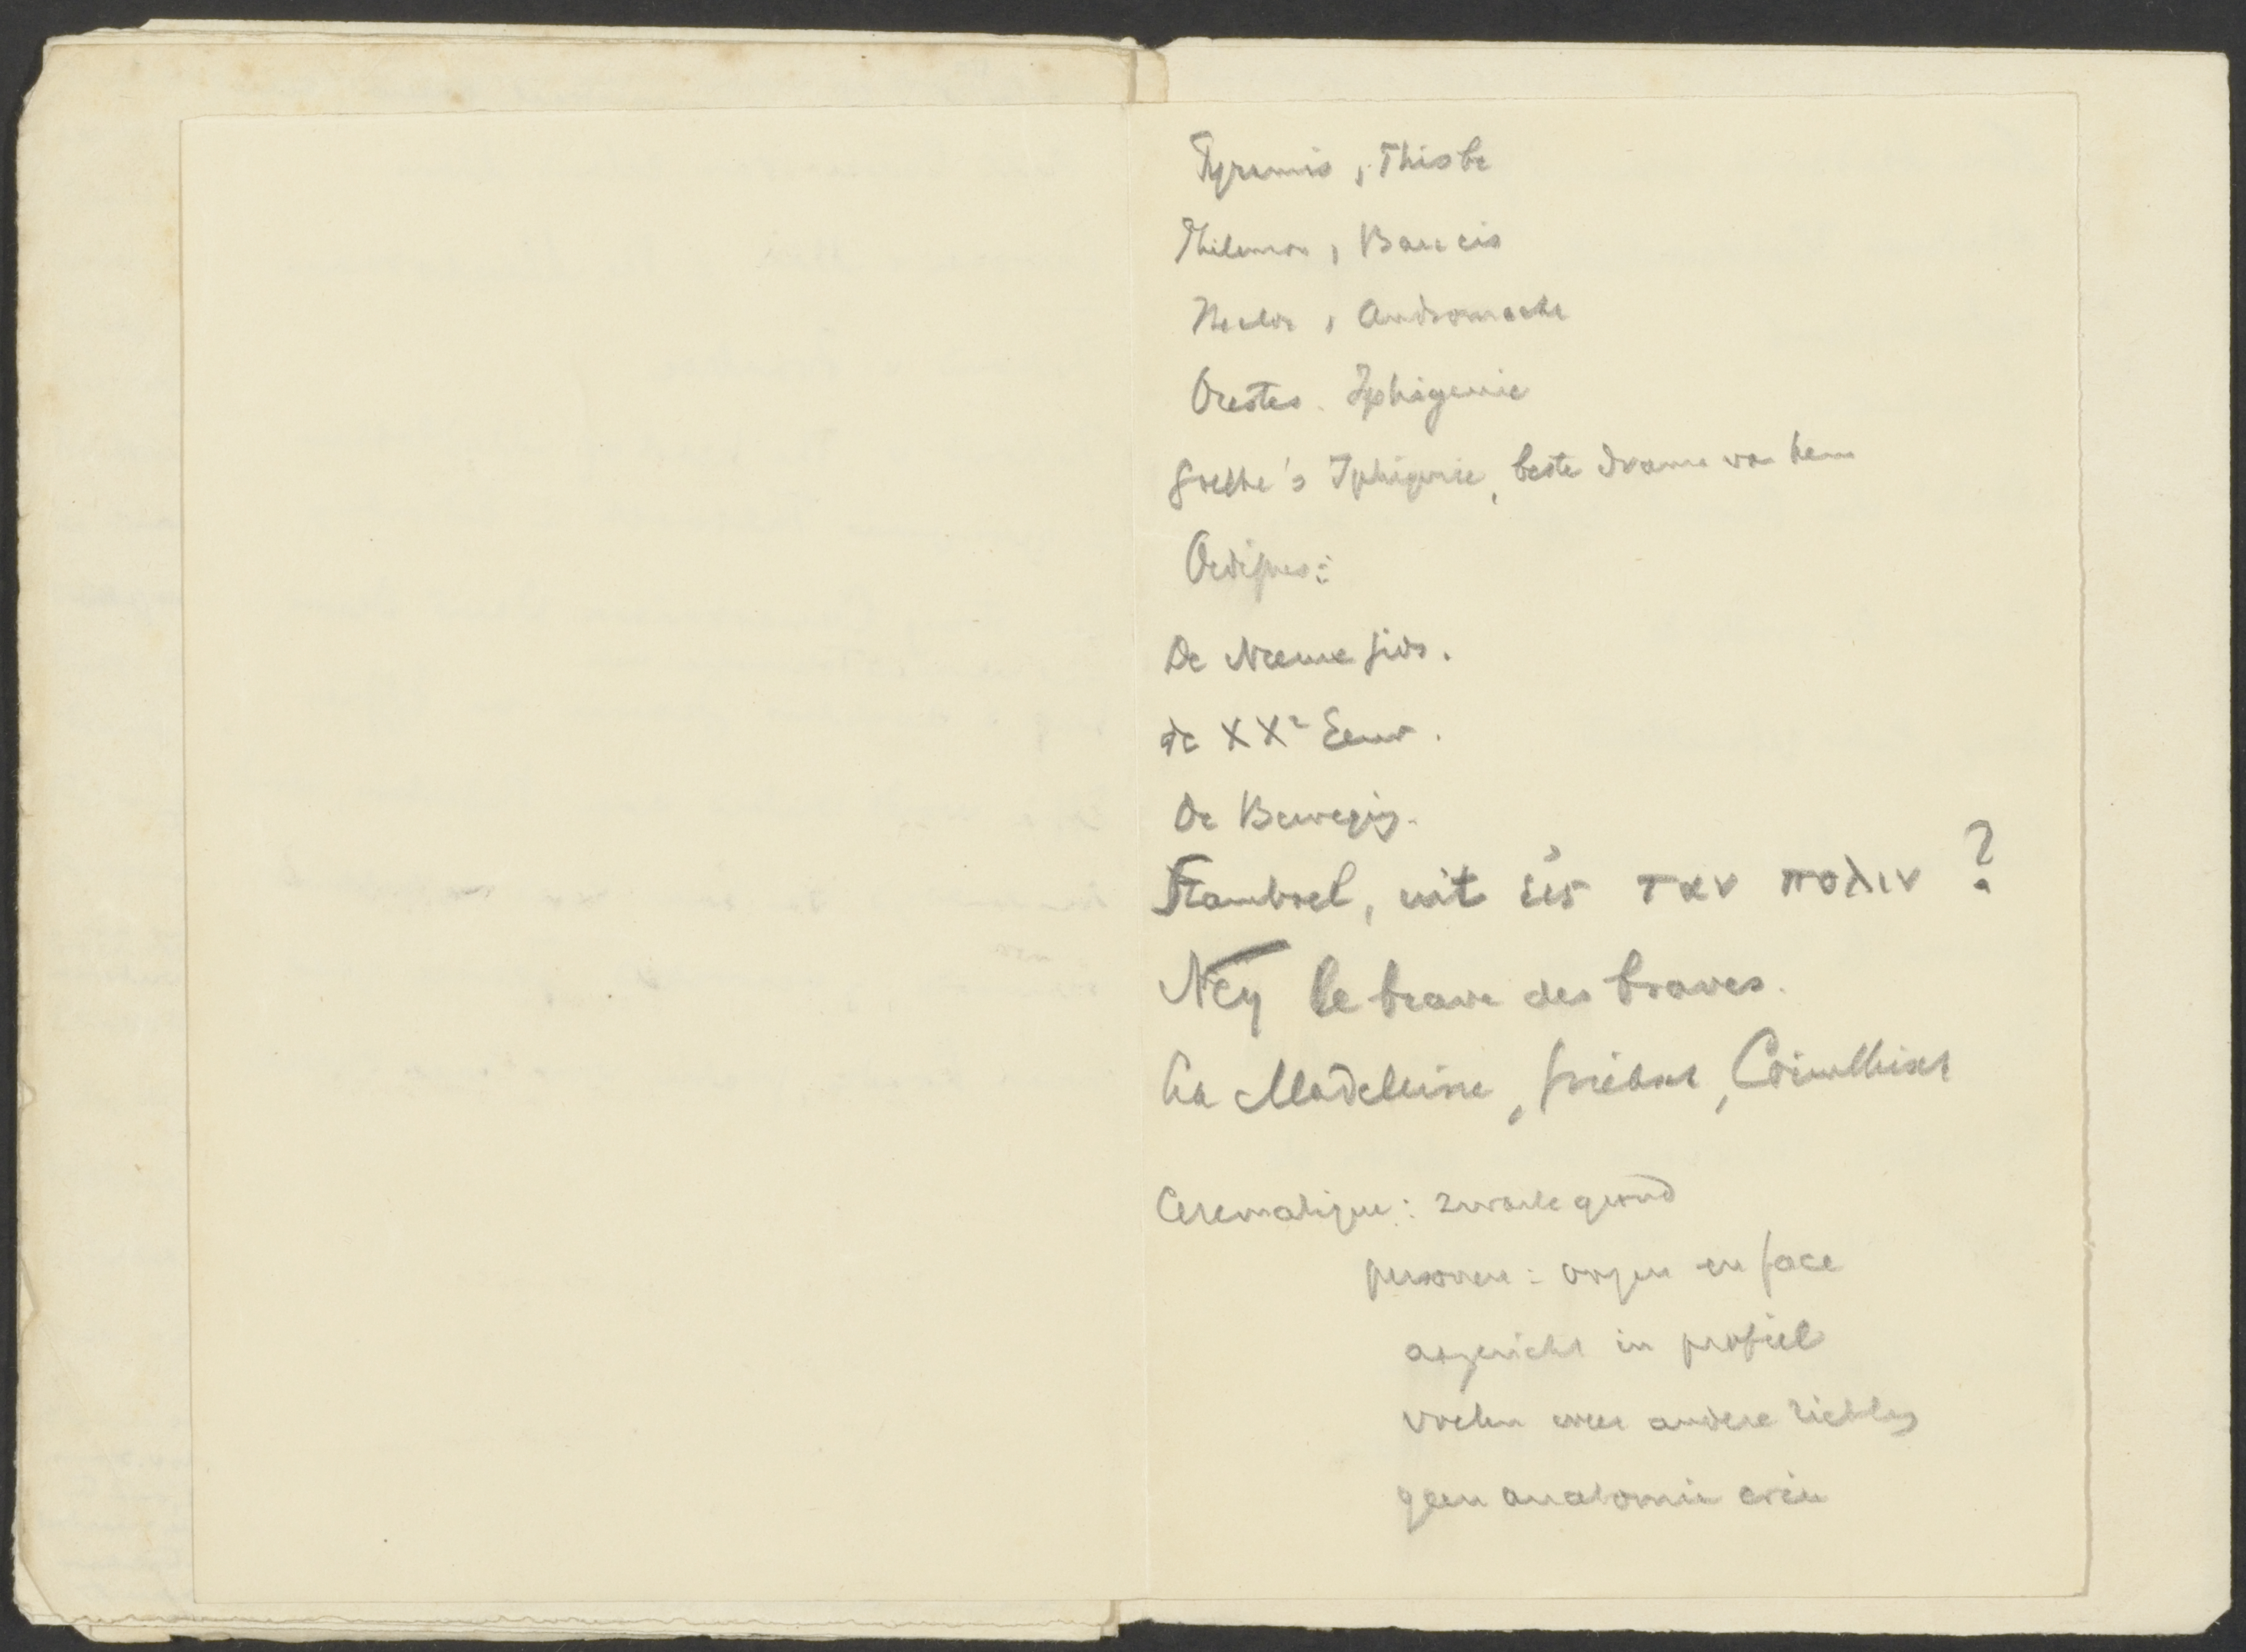 Pyramis, Thisbe
Philemon, Baucis
Hector, Andromache
Orestes. Iphigenie
Goethe's Iphigenie, beste drama van hem
Oedipus:
De Nieuwe Gids.
de XXe Eeuw.
De Beweging.
Stamboel, uit εἰς ταν πολιν ?
Ney le brave des braves.
La Madeleine, Corinthisch
Ceramatique: zwarte grond
personen: oogen en face
aangezicht in profiel
voeten weer andere richting
geen anatomie erin